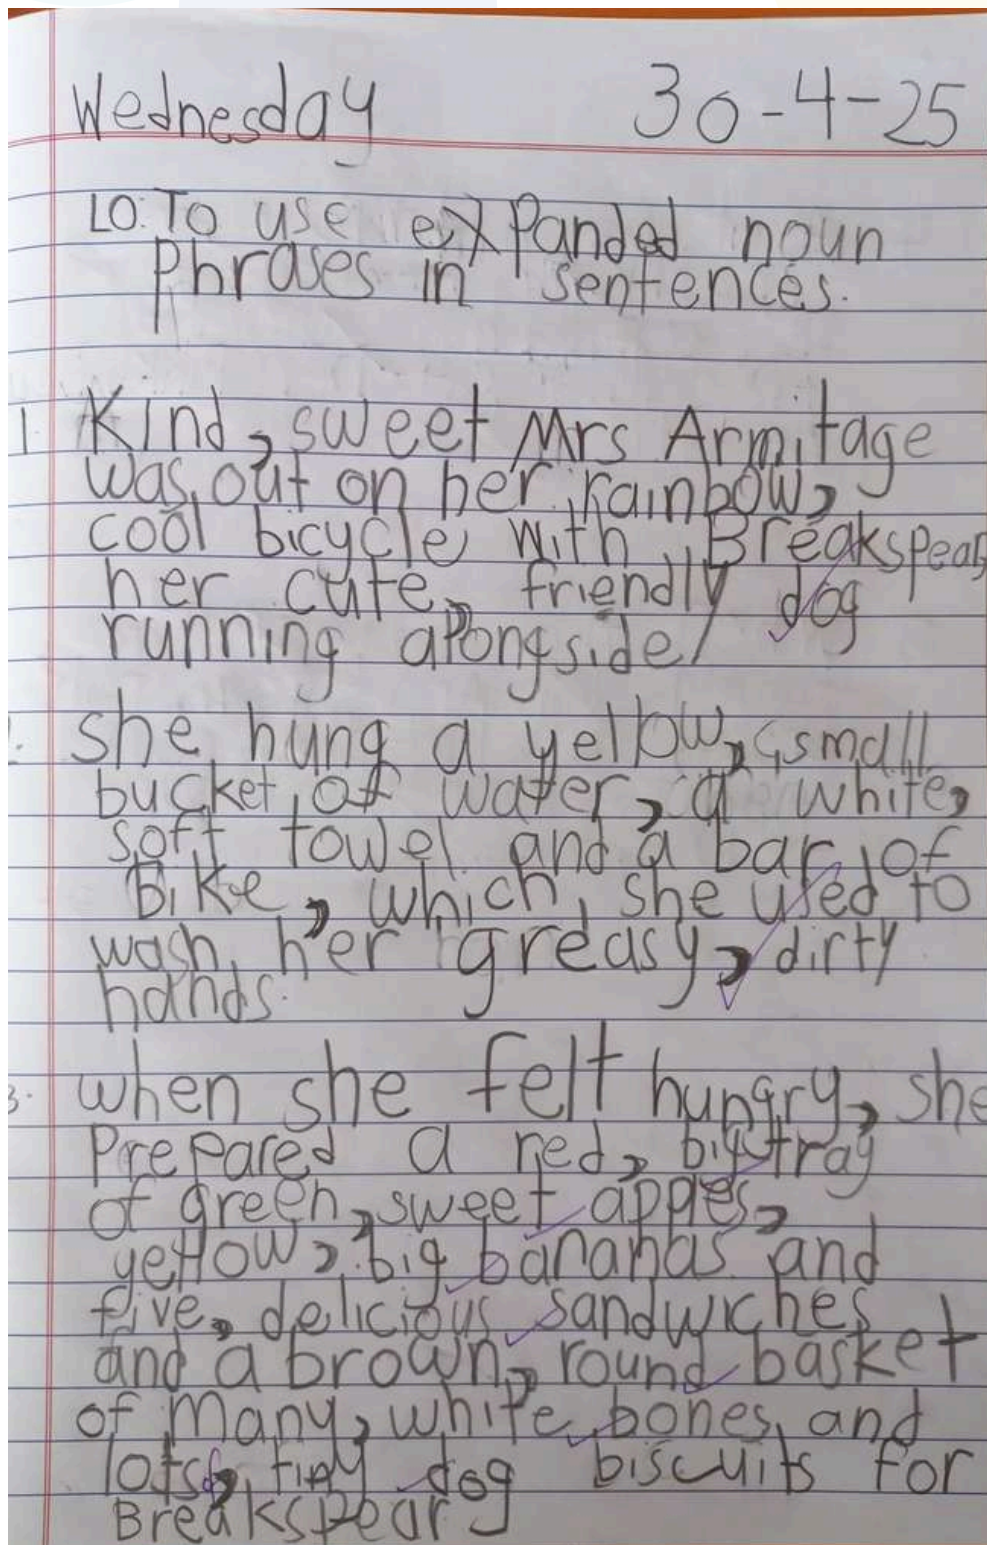 Wednesday 30-4-25
LO: To use expanded noun
Phrases in sentences.
1. Kind, sweet Mrs Armitage
was out on her rainbow,
cool bicycle with Breakspear,
her cute, friendly dog
running alongside.
she hung a yellow, small
bucket of water, a white,
soft towel and a bar of
Bike, which she used to
wash her greasy, dirty
hands.
3. when she felt hungry, she
Prepared a red, big tray
of green, sweet apples,
yellow, big bananas and
five, delicious sandwiches
and a brown, round basket
of many, white bones and
lots, tiny dog biscuits for
Breakspear